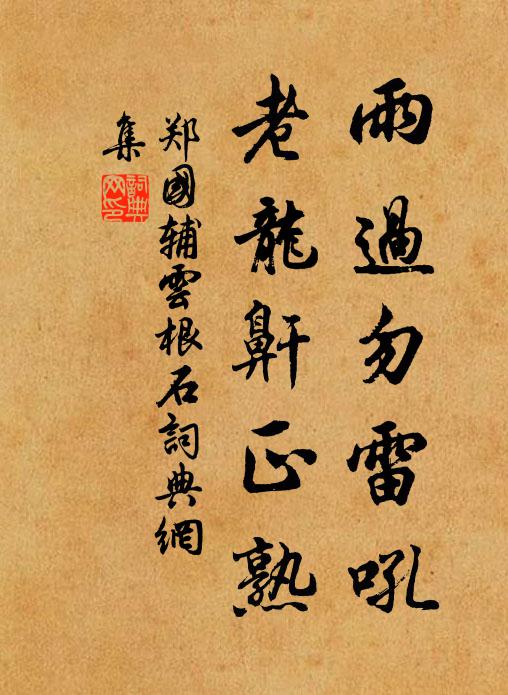 雨過勿雷吼
老龍鼾正熟
郑國辅雲根石詞典網
集
詞典
网印